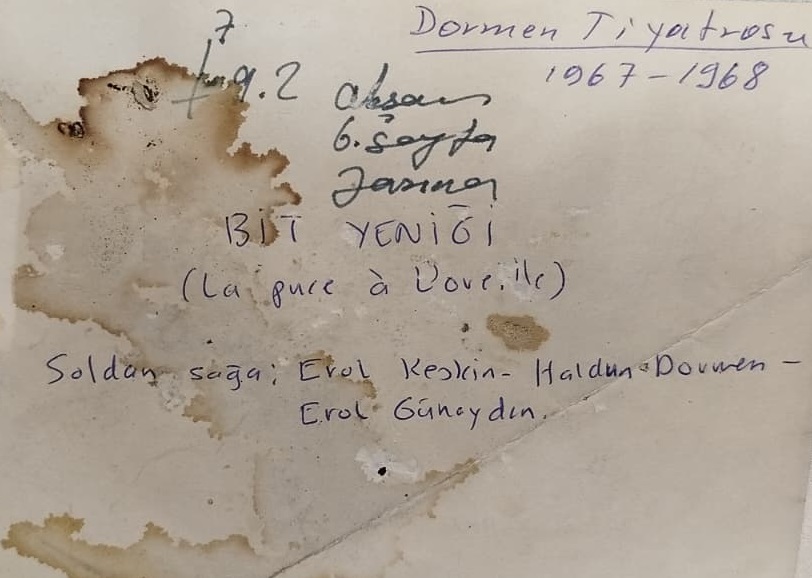 Dormen Tiyatrosu
1967-1968
7
9.2
akşam
6. Sayfa
BİT YENİĞİ
(La puce à L'oreille)
Soldan sağa: Erol Keskin - Haldun Dormen -
Erol Günaydın.